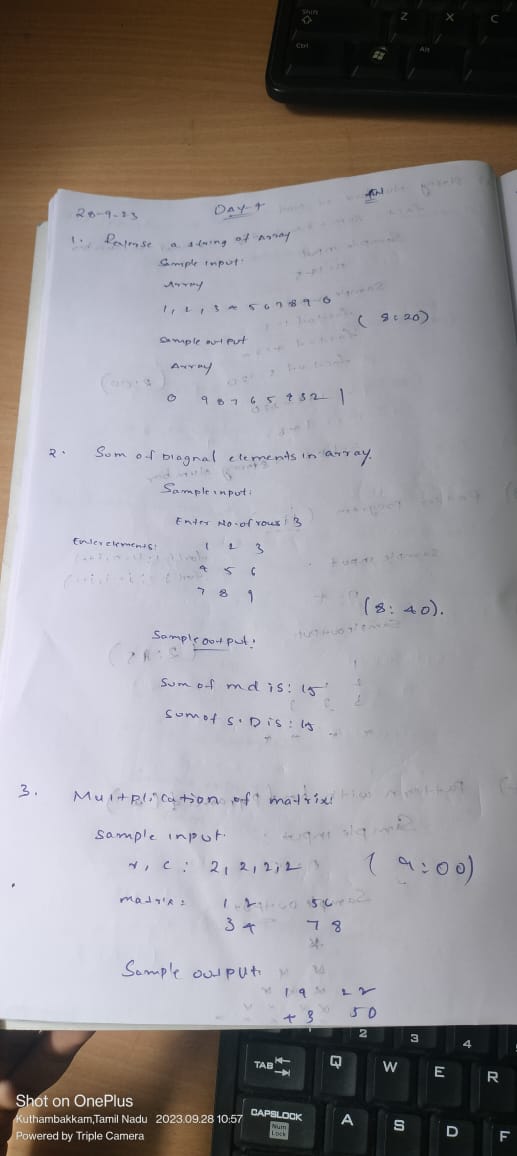 Shift
Ctrl
Alt
Z X C
28-9-23
DAY-4
1. Reverse a string of array
Sample input:
Array
1, 2, 3 4 5 6 7 8 9 0
(8:20)
Sample output
Array
0 9 8 7 6 5 4 3 2 1
2. Sum of Diagnal elements in array.
Sample input:
Enter No. of rows: 3
Enter elements: 1 2 3
4 5 6
7 8 9
(8:40).
Sample output:
Sum of md is: 15
Sum of S.D is: 15
3. Multplication of matrix:
Sample input:
r, c: 2, 2, 2, 2
(9:00)
matrix: 1 2 5 6
3 4 7 8
Sample output:
19 22
43 50
1 2 3 4
TAB Q W E R
CAPSLOCK A S D F
Num
Lock
Shot on OnePlus
Kuthambakkam,Tamil Nadu 2023.09.28 10:57
Powered by Triple Camera